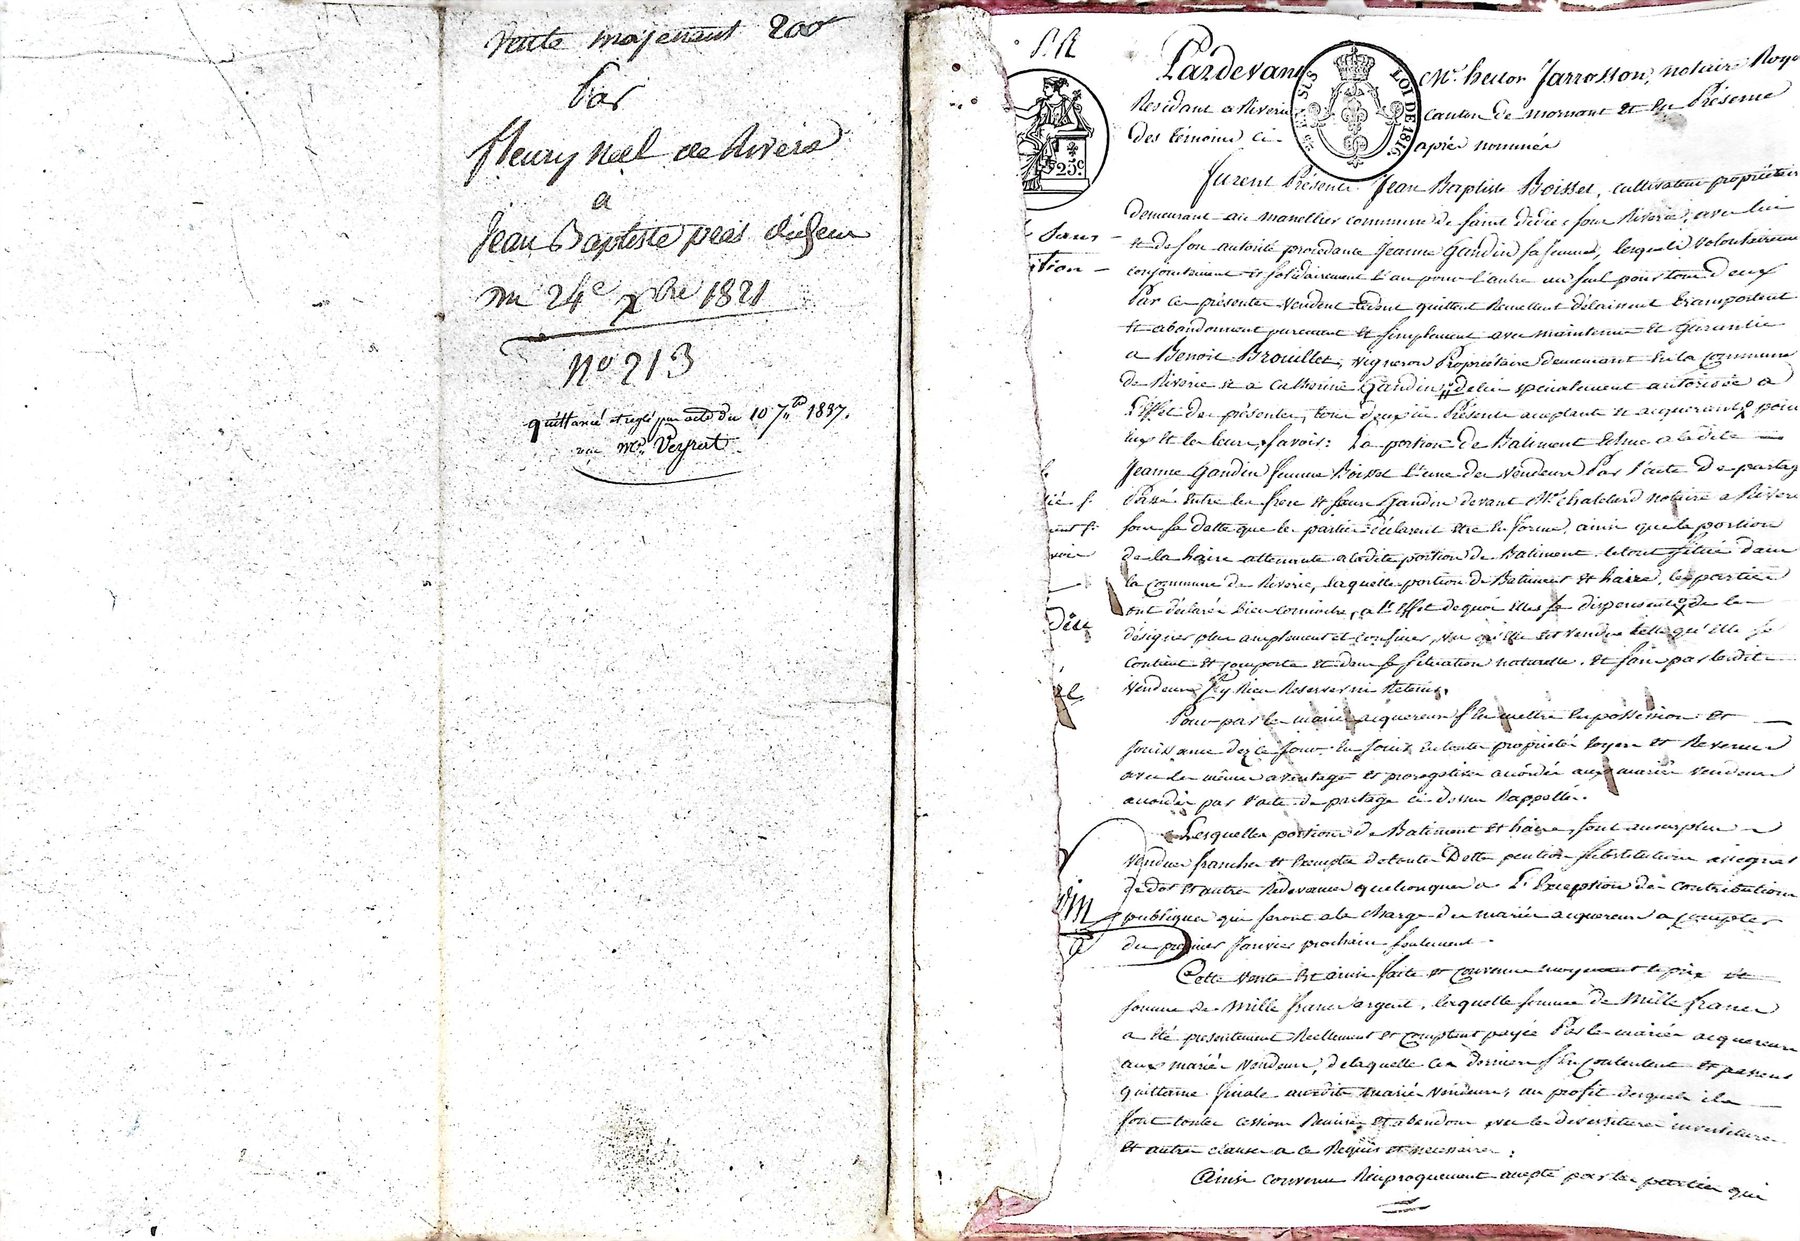 Vente moyenent 200
Par
fleury Neel de Riverie
a
Jean Baptiste pras digeur
du 24e xbre 1821
No 213
quittancé et reglé par acte du 10 7bre 1837.
Me Veyrat
P.R
SUS LOI DE 1816.
25c.
Pardevant Me hector Jarrosson, notaire Roya
Residant a Riverie canton de mornant et en Présence
des témoins ci- après nommés
furent Présents Jean Baptiste Boisset, cultivateur propriétaire
demeurant au manellier commune de saint didier sous Riverie, avec lui
et de son autorité procedante Jeanne Gandin sa femme, lesquels volontairement
conjointement et solidairement l'un pour l'autre un seul pour tous deux
Par ces présentes vendent cedent quittent Remettent délaissent transportent
et abandonnent purement et simplement avec maintenue et Garantie
a Benoit Brouillet, vigneron Propriétaire demeurant en la Commune
de Riverie et a Catherine Gandin de lui specialement autorisée a
l'Effet des présentes, tous deux ici Présents acceptants et acquereurs pour
eux et les leurs, savoir: La portion de Batiment echue a ladite
Jeanne Gandin femme Boisset l'une des vendeurs Par l'acte de partag
Passé entre les frere et sœurs Gandin devant Me chatelard notaire a Riverie
sous sa datte que les parties déclarent etre en forme, ainsi que la portion
de la haire attenante a ladite portion de Batiment, le tout situé dans
la Commune de Riverie, laquelle portion de Batiment et haire, les parties
ont déclaré bien connoitre, a l'Effet de quoi elles se dispensent de la
désigner plus amplement et confiner, vu qu'elle est vendue telle qu'elle se
contient et comporte et dans sa situation naturelle, et sans par lesdits
vendeurs s'y Rien Reserver ni Retenir.
Pour par les mariés acquereurs s'en mettre en possession et
jouissance dez ce jour en jouir en toute propriété loyers et Revenus
avec les mêmes avantages et prerogatives accordés aux mariés vendeurs
accordés par l'acte de partage ci dessus Rappellé.
Lesquelles portions de Batiment et haire, sont au surplus
vendues franches et exemptes de toutes Dettes pention substitution
de dot et autres Redevances quelconques a l'Exception des contributions
publiques qui seront a la charge des mariés acquereurs a compter
du premier Janvier prochain seulement.
Cette vente Est ainsi faite et convenue moyenant le prix et
somme de Mille francs argent, laquelle somme de Mille francs
a été presentement Réellement et comptant payée Par les mariés acquereurs
aux mariés vendeurs, de laquelle ces derniers s'en contentent et passent
quittance finale auxdits mariés vendeurs, au profit desquels ils
font toutes cessions Remises et abandons avec les devestitures investitures
et autres clauses a ce Requis et necessaires.
Ainsi convenu Réciproquement accepté par les parties qui